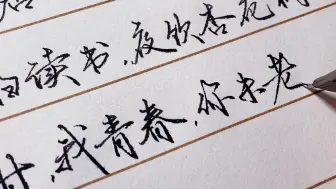 读书，夜饮杏花
，我青春，你未老